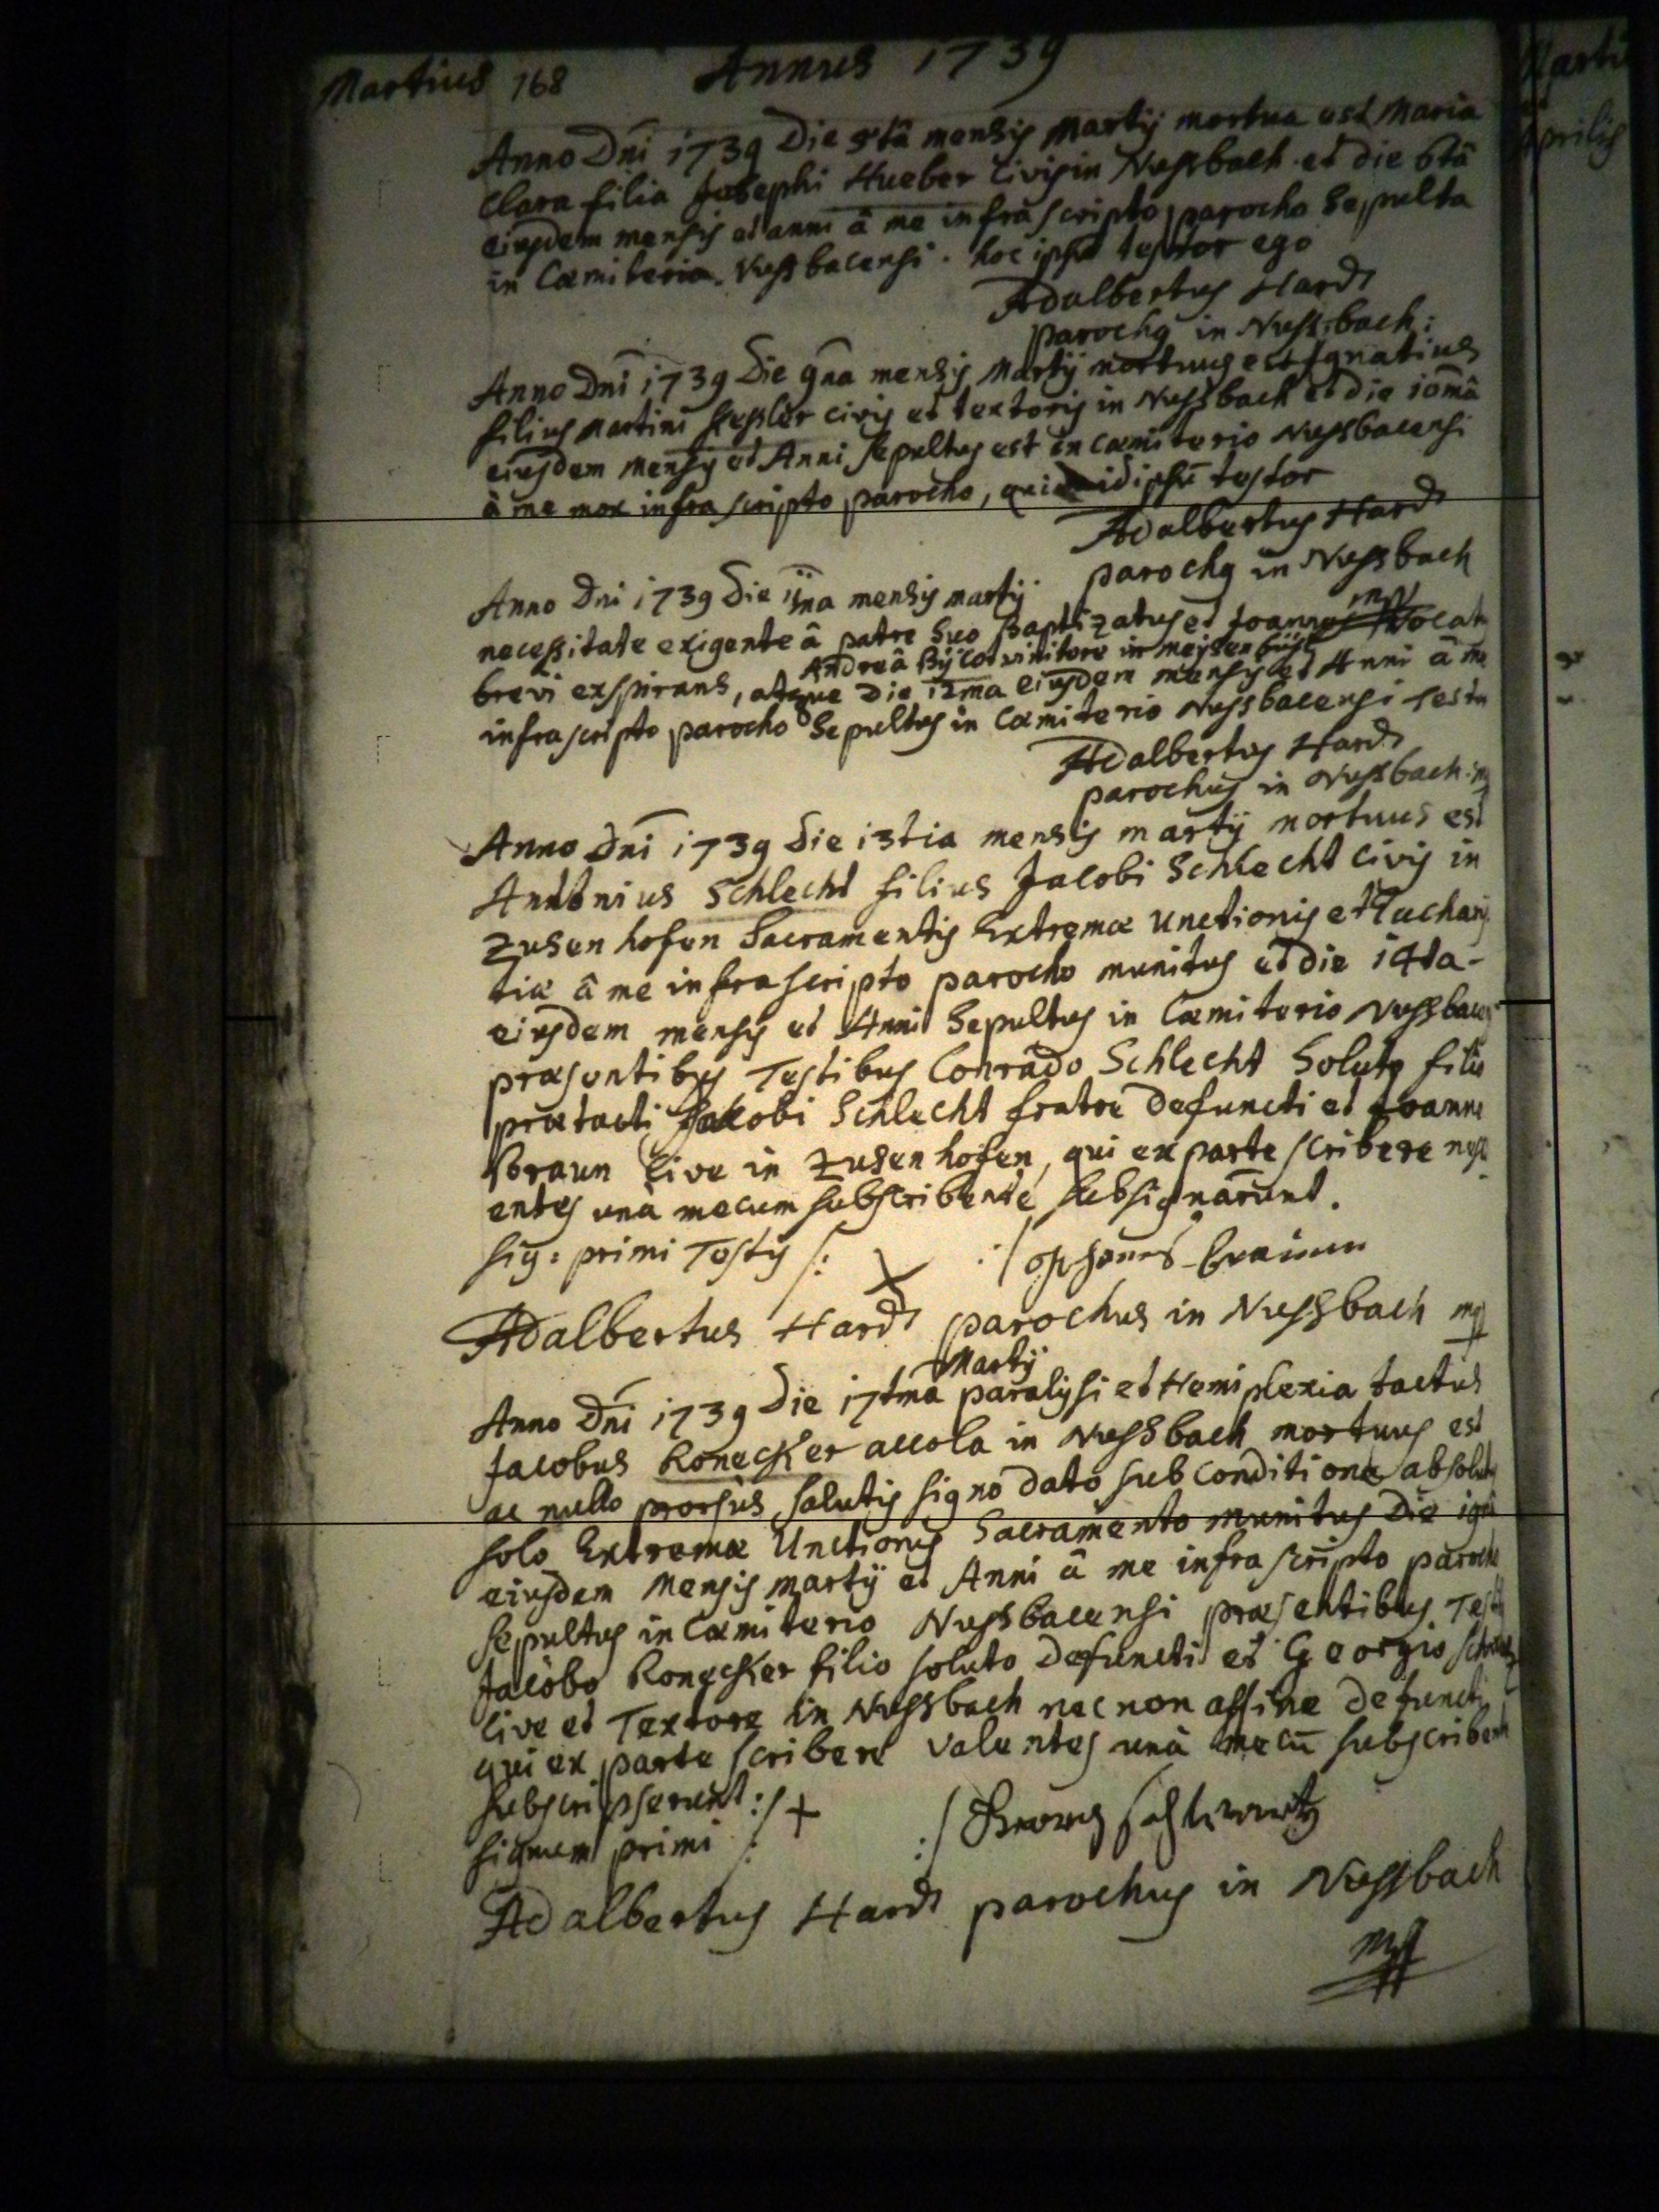 Martius 168 Annus 1739
Anno Dni 1739 Die 5tâ mensis Martij mortua est Maria
Clara filia Josephi Hueber Civis in Nussbach et die 6tâ
eiusdem mensis et anni â me infra scripto parocho Sepulta
in Cœmiterio Nussbacensi. hoc ipsũ testor ego
Adalbertus Hardt
parochq in Nussbach:
Anno Dni 1739 Die 9na mensis Martij mortuus est Ignatius
filius Martini Kessler civis et textoris in Nussbach et die 10mâ
eiusdem mensis et Anni Sepultus est in cœmiterio Nussbacensi
â me mox infra scripto parocho, qui idipsũ testor
Adalbertus Hardt
parochq in Nussbach
Anno Dni 1739 Die mensis martij
necessitate exigente â patre suo Baptizatus et Joannes vocat
Andreâ vinitore in
brevi exspirans, atque Die 12ma eiusdem mensis et Anni â me
infrascripto parocho Sepultus in Cœmiterio Nussbacensi testor
Adalbertus Hardt
parochus in Nussbach
Anno Dni 1739 Die 13tia mensis martij mortuus est
Antonius Schlecht filius Jacobi Schlecht Civis in
Zusenhofen Sacramentis Extremæ Unctionis et Euchari
tiæ â me infrascripto parocho munitus et die 14ta
eiusdem mensis et Anni Sepultus in Cœmiterio Nussbacen
præsentibus Testibus Conrado Schlecht Soluto filio
prætacti Jacobi Schlecht fratre Defuncti et Joanne
Braun Cive in Zusenhofen, qui ex parte scribere nesci
entes unà mecum subscribente subsignarunt.
sig: primi Testis /: X :/ Johannes braun
Adalbertus Hardt parochus in Nussbach mp
Martij
Anno Dni 1739 Die 17tmâ paralysi et Hemiplexia tactus
Jacobus Konecker accola in Nussbach mortuus est
ac nullo prorsùs salutis signo dato sub conditione absolut
solo Extremæ Unctionis Sacramento munitus Die 19nâ
eiusdem Mensis martij et Anni â me infra scripto parocho
Sepultus in Cœmiterio Nussbacensi præsentibus Testi
Jacobo Konecker filio soluto Defuncti et Georgio
Cive et Textore in Nussbach nec non affine Defuncti
qui ex parte scribere valentes unà mecũ subscribent
subscripserunt :/ +
signum primi /: :/
Adalbertus Hardt parochus in Nussbach
mp
Marti
Aprilis